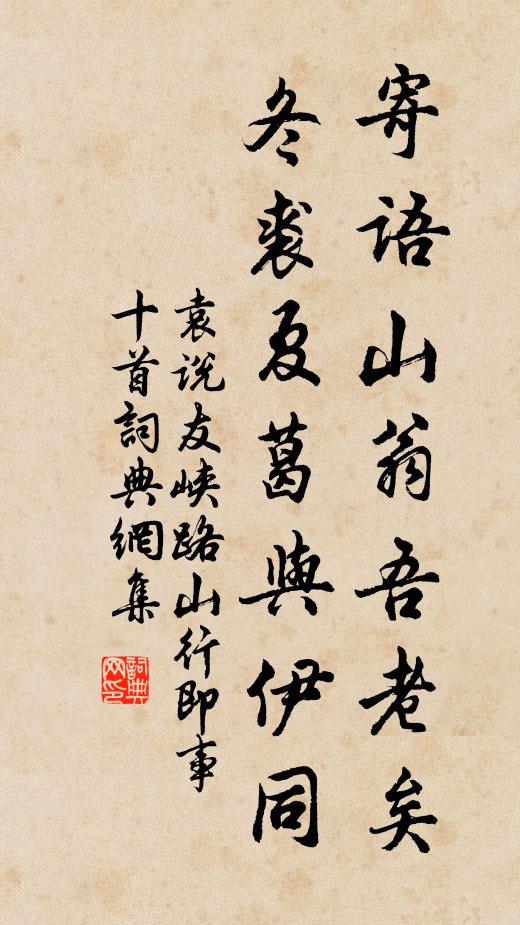 寄语山翁吾老矣
冬裘夏葛與伊同
袁说友峡路山行即事
十首詞典網集
詞典
网印